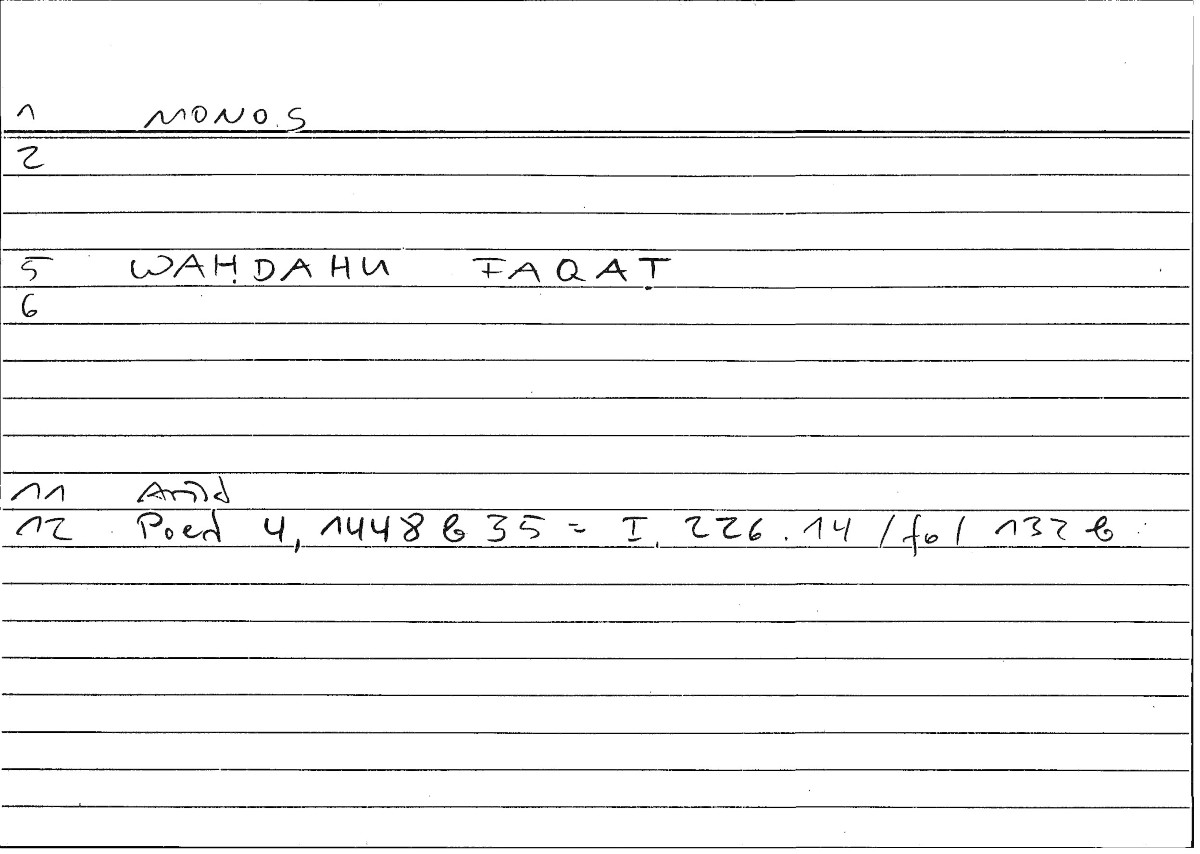 1 MONOS
2
5 WAḤDAHU FAQAṬ
6
11 Arist
12 Poet 4, 1448 b 35 = I, 226.14 / fol 132 b